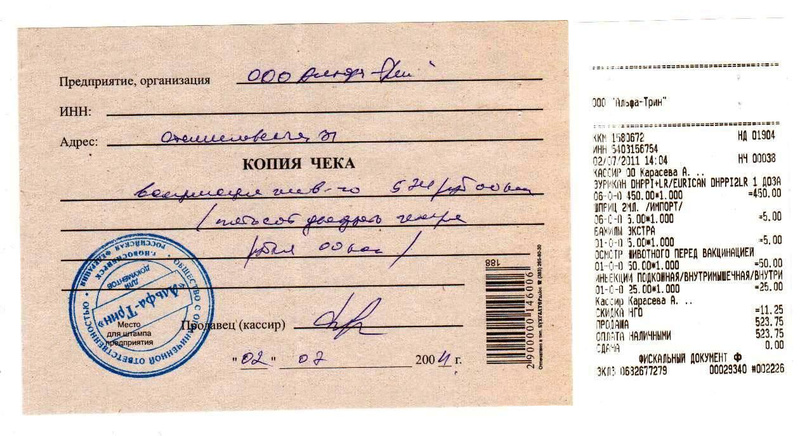 Предприятие, организация ООО Альфа-Трин
ИНН:
Адрес:
КОПИЯ ЧЕКА
524 руб 00 коп
/ пятьсот двадцать четыре
рубля 00 коп /
Продавец (кассир)
"02" 07 200 г.
Место
для штампа
предприятия
ОБЩЕСТВО С ОГРАНИЧЕННОЙ ОТВЕТСТВЕННОСТЬЮ
РОССИЙСКАЯ ФЕДЕРАЦИЯ
г. НОВОСИБИРСК
для
документов
«Альфа-Трин»
188
2 900000 146006
ООО "Альфа-Трин"
ККМ 1580672 НД 01904
ИНН 5403156754
02/07/2011 14:04 НЧ 00038
КАССИР 00 Карасева А. ..
ЭУРИКАН DHPPI+LR/EURICAN DHPPI2LR 1 ДОЗА
06-0-0 450.00*1.000 =450.00
ШПРИЦ 2МЛ. /ИМПОРТ/
06-0-0 5.00*1.000 =5.00
БАХИЛЫ ЭКСТРА
01-0-0 5.00*1.000 =5.00
ОСМОТР ЖИВОТНОГО ПЕРЕД ВАКЦИНАЦИЕЙ
01-0-0 50.00*1.000 =50.00
ИНЪЕКЦИИ ПОДКОЖНАЯ/ВНУТРИМЫШЕЧНАЯ/ВНУТРИ
01-0-0 25.00*1.000 =25.00
Кассир Карасева А. ..
СКИДКА НГО =11.25
ПРОДАЖА 523.75
ОПЛАТА НАЛИЧНЫМИ 523.75
СДАЧА 0.00
ФИСКАЛЬНЫЙ ДОКУМЕНТ Ф
ЭКЛЗ 0632677279 00029340 #002226